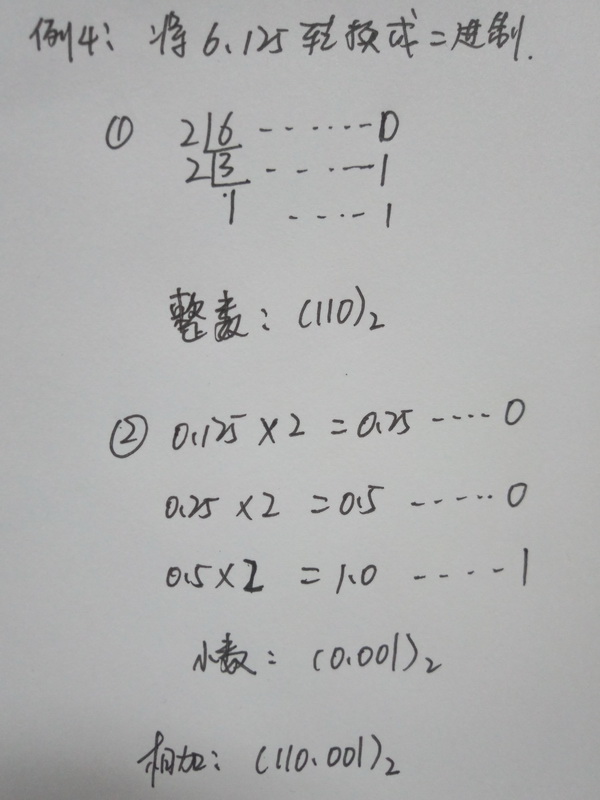 例4：将6.125转换成二进制.
① 2 6 -------0
2 3 ------1
1 -----1
整数：(110)₂
② 0.125×2=0.25 ----0
0.25×2=0.5 -----0
0.5×2=1.0 -----1
小数：(0.001)₂
相加：(110.001)₂